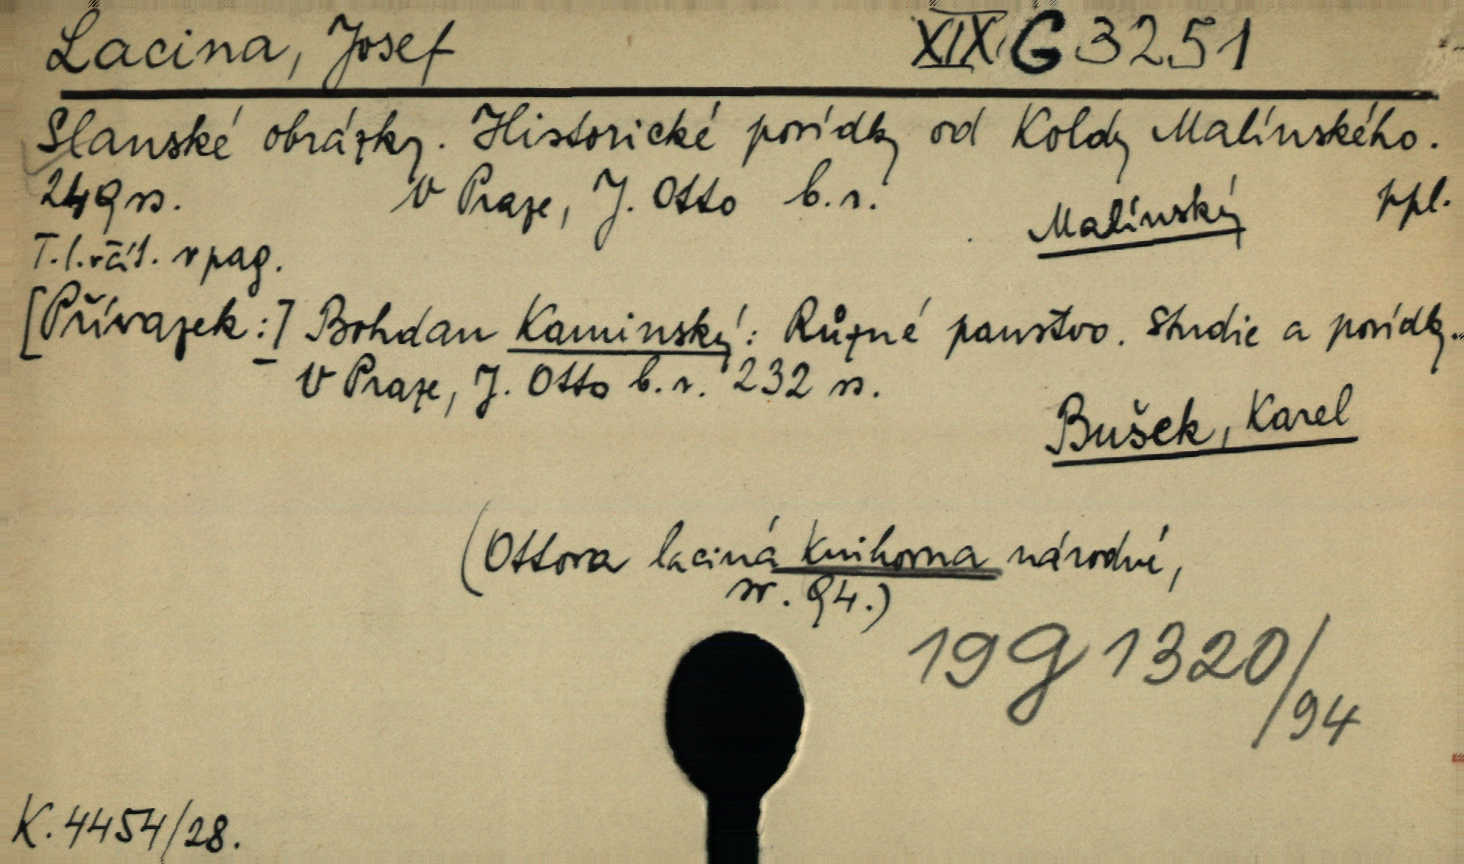 Lacina, Josef XIX G 3251
Slanské obrázky. Historické povídky od Koldy Malínského.
249 ss. V Praze, J. Otto b. r. Malínský ppl.
T. l. včít. v pag.
[Přívazek:] Bohdan Kaminský: Různé panstvo. Studie a povídky.
V Praze, J. Otto b. r. 232 ss.
Bušek, Karel
(Ottova laciná Knihovna národní,
sv. 94.)
19 g 1320/94
K. 4454/28.